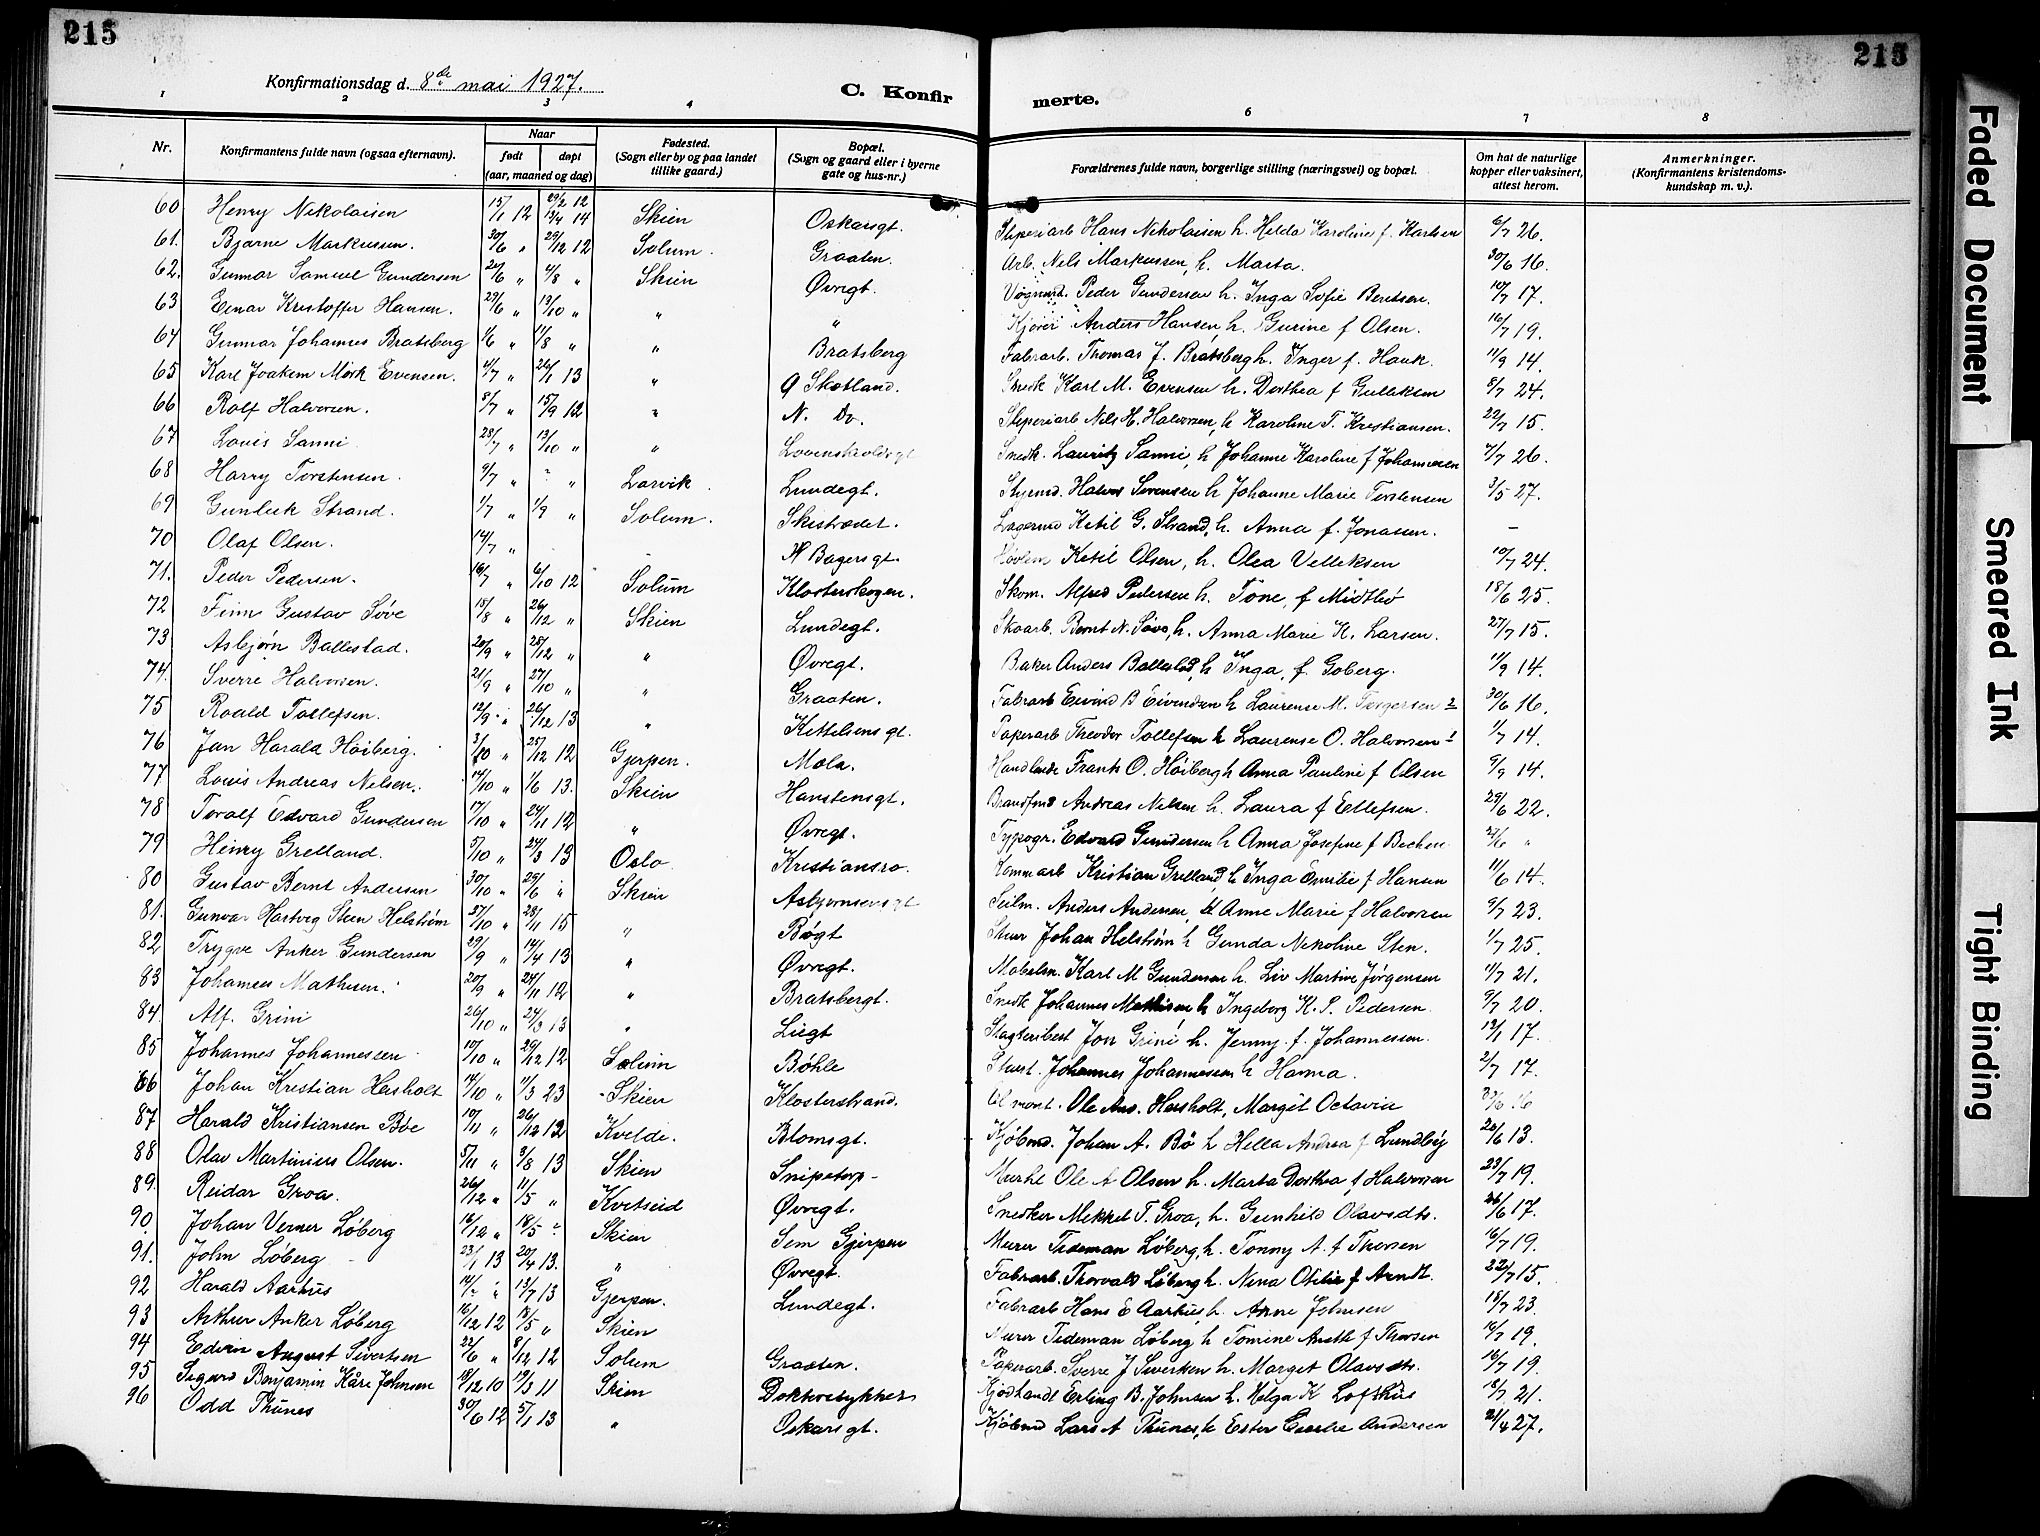 215
215
Konfirmationsdag d. 8de mai 1927.
C. Konfir
merte.
1 2 3 4 6 7 8
Nr.
Konfirmantens fulde navn (ogsaa efternavn).
Naar
født
døpt
(aar, maaned og dag)
Fødested.
(Sogn eller by og paa landet
tillike gaard.)
Bopæl.
(Sogn og gaard eller i byerne
gate og hus-nr.)
Forældrenes fulde navn, borgerlige stilling (næringsvei) og bopæl.
Om hat de naturlige
kopper eller vaksinert,
attest herom.
Anmerkninger.
(Konfirmantens kristendoms-
kundskap m. v.).
60 Henry Nikolaisen 15/1 12 29/2 12 13/4 14 Skien Oskarsgt. Sliperiarb Hans Nikolaisen h. Helda Karoline f. Karlsen 6/7 26.
61. Bjarne Markussen. 30/6 " 29/12 12 Solum. Graaten. Arb. Nels Markussen, h. Marta. 30/6 16.
62. Gunnar Samuel Gundersen 4/8 " Skien Øvregt. Peder Gundersen h. Inga Sofie Berntsen. 10/7 17.
63 Einar Kristoffer Hansen. 29/6 " 13/10 " " " Kjører Anders Hansen, h. Gurine f Olsen. 16/7 19.
64 Gunnar Johannes Bratsberg 1/6 " 11/8 " " Bratsberg Fabrarb. Thomas J. Bratsberg h. Inger f. Hauk. 11/9 14.
65 Karl Joakem Mørk Evensen. 4/7 " 26/1 13 " G Skotland. Snedk Karl M. Evensen h. Dorthea f Gulleksen 8/7 24.
66 Rolf Halvorsen. 8/7 " 15/9 12 " N. Do. Sliperiarb Nils H. Halvorsen, h Karoline T. Kristiansen. 22/7 15.
67 Louis Sanni 28/7 " 13/10 " " Løvenskioldsgt Snedk. Lauritz Sanni, h Johanne Karoline f Johannesen 7/7 26.
68 Harry Torstensen. 9/7 " " Larvik Lundegt. Styrmd. Halvor Sørensen h Johanne Marie Torstensen 3/5 27.
69 Gunleik Strand. 1/7 " 1/9 " Solum. Skistrædet. Lagermd Ketil G. Strand, h. Anna f. Jonassen. –
70 Olaf Olsen. 14/7 " H Bagersgt. Ketil Olsen, h. Olea Velleksen 10/7 24.
71. Peder Pedersen. 16/7 " 6/10 12 Solum Klosterskogen. Skom. Alfred Pedersen h. Tone, f Midtbø 18/6 25.
72 Finn Gustav Søve 15/8 " 26/12 " Skien Lundegt. Skoarb. Bernt N. Søve, h. Anna Marie K. Larsen. 27/7 15.
73 Asbjørn Ballestad. 20/9 " 25/12 " " Øvregt. Baker Anders Ballestad, h Inga, f. Goberg. 11/9 14.
74. Sverre Halvorsen. 21/9 " 27/10 " " Graaten. Fabrarb Eivind B Eivendsen h Laurense M. Torgersen 30/6 16.
75 Roald Tollefsen. 12/9 " 26/12 13 " Kittelsensgt. Papirarb Theodor Tollefsen h Laurense O. Halvorsen 1/7 14.
76 Jan Harald Høiberg. 3/10 " 25/12 12 Gjerpen. Mæla. Handlende Frants O. Høiberg h Anna Pauline f Olsen 9/9 14.
77 Louis Andreas Nelsen. 14/10 " 1/6 13. Skien Hanstensgt. Andreas Nelsen h. Laura f Ellefsen. 29/6 22.
78 Toralf Edvard Gundersen 17/10 " 24/11 12 " Øvregt. Typogr. Edvard Gundersen h Anna Josefine f 27/6 "
79 Henry Grelland. 5/10 " 24/3 13 Oslo Kristiansro. Kommarb Kristian Grelland, h Inga Emilie f Hansen 11/6 14.
80 Gustav Bernt Andersen 30/10 " 29/6 " Skien Asbjørnsensgt Seilm. Anders Andersen, h Anne Marie f Halvorsen 9/7 23.
81. Gunvar Hartvig Steen Helstrøm 27/10 " 28/11 15 " Bøgt Johan Helstrøm h Gunda Nekoline Sten. 1/7 25.
82 Trygve Anker Gundersen 29/9 " 14/4 13 " Øvregt. Møbelm. Karl M Gundersen h. Liv Martine Jørgensen 11/7 21.
83 Johannes Mathisen. 20/9 " 24/11 12 " Bratsbergt. Snedk Johannes Mathisen h Ingeborg K. S. Pedersen. 9/7 20.
84. Alf. Grini 26/10 " 24/3 13 " Liegt Jon Grini h. Jenny f. Johannessen. 13/1 17.
85 Johannes Johannessen 10/10 " 29/12 12 Solum Bøhle Johannes Johannessen h Hanna. 2/7 17.
86 Johan Kristian Hasholt 14/10 " 11/3 23 Skien Klosterstrand. Ole Ans. Hasholt, Margit Octavia
87 Harald Kristiansen Bøe 10/11 " 26/12 12 Kvelde. Blomsgt. Kjøbmd. Johan A. Bø h Hella Andrea f Lundbÿ 20/6 13.
88 Olav Martinius Olsen. 5/11 " 3/8 13 Skien Snipetorp Ole A Olsen h. Marta Dorthea f. Halvorsen 23/7 19.
89. Reidar Groa. 26/12 " 11/5 " Kvitseid Øvregt. Snedker Mekkel T. Groa, h. Gunhild Olavsdtr. 26/6 17.
90. Johan Verner Løberg 16/12 " 18/5 " Skien Sem Gjerpen Murer Tideman Løberg, h. Tonny A. f Thorsen 16/7 19.
91. John Løberg 23/1 13 20/4 13. " Øvregt. Fabrarb. Thorvald Løberg h. Nina Otilie f Arndt. 22/7 15.
92 Harald Aarhus 13/7 13 Gjerpen. Lundegt. Fabrarb Hans E Aarhus, h. Anne Johnsen 18/7 23.
93 Arthur Anker Løberg 16/12 12 18/5 " Skien Murer Tideman Løberg h Tomine f Thorsen 16/7 19.
94 Edvin August Sivertsen 22/6 " 8/12 12 Solum Graaten. Papirarb. Sverre J Siverksen h. Marget Olavsdtr. 16/7 19.
95 Sigurd Benjamin Kåre Johnsen 18/12 10 19/3 11 Skien Doktorstykket Erling B. Johnsen h. Helga K Lofthus 18/7 21.
96 Odd Thunes 30/6 12 5/1 13 " Oskarsgt. Kjøbmd Lars A Thunes, h Ester Cecelie Andersen 21/4 27.
Faded Document
Smeared Ink
Tight Binding